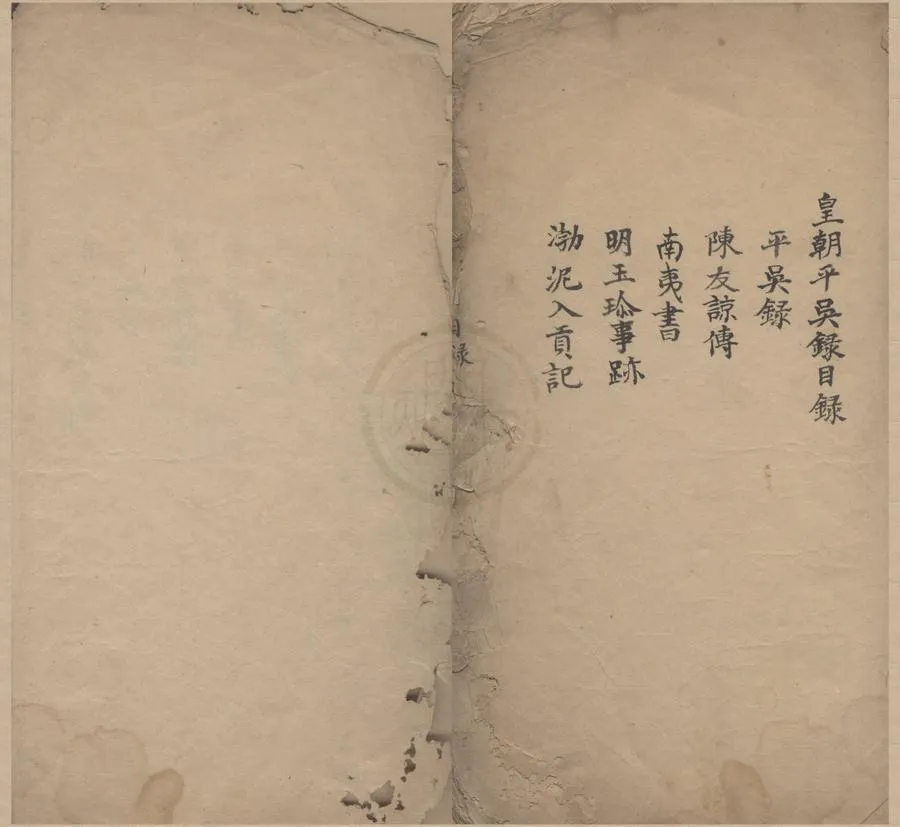 皇朝平吳録目録
平吳録
陳友諒傳
南夷書
明玉珍事跡
渤泥入貢記
目録